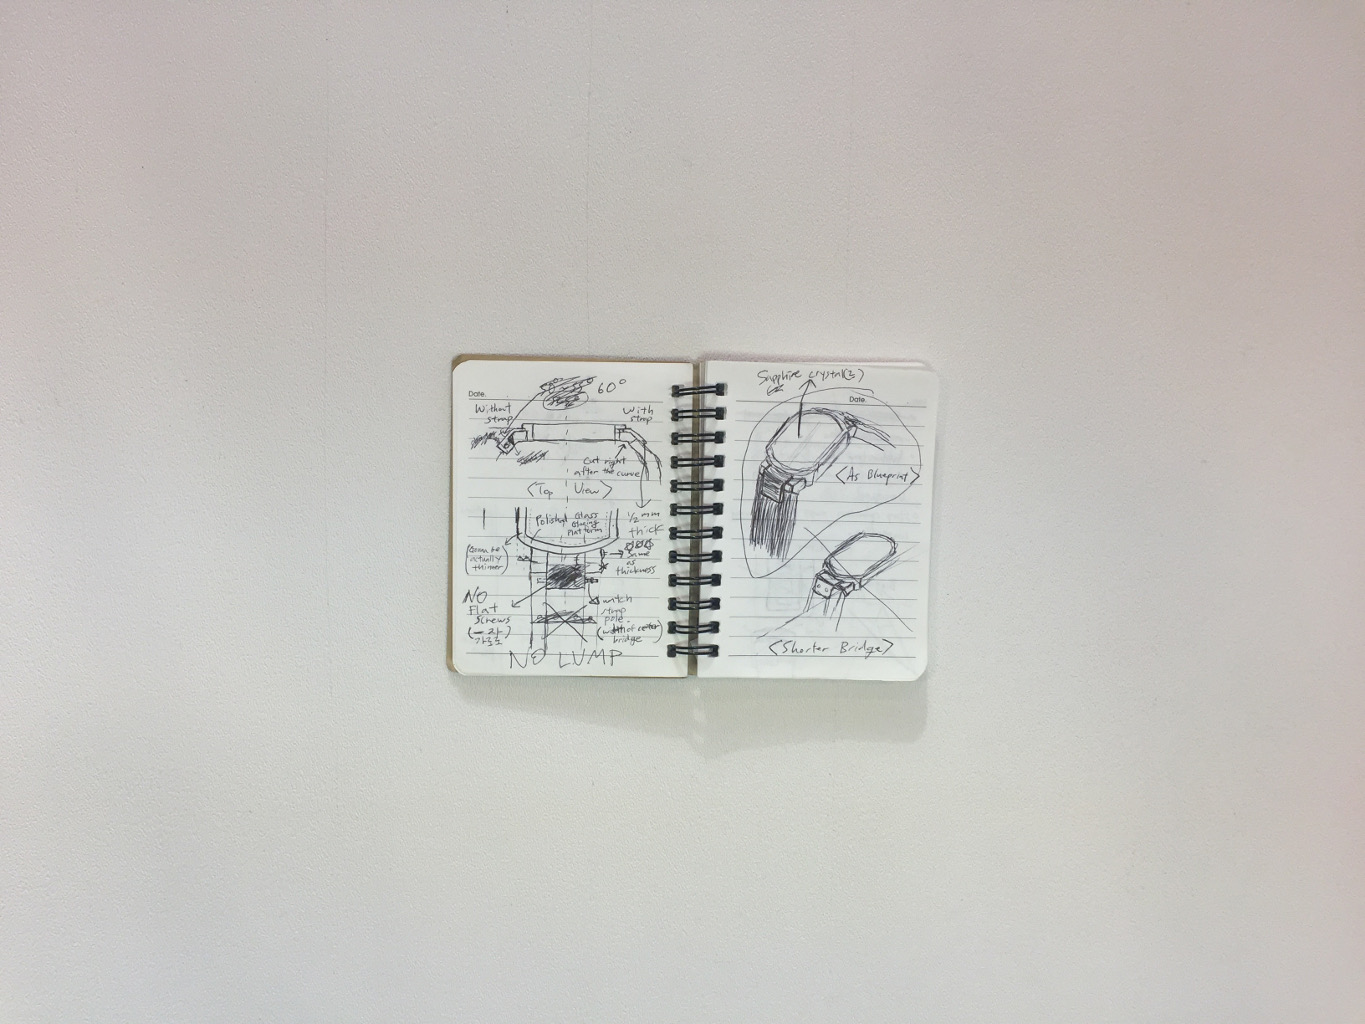 Date.
60°
Without
strap
With
strap
Cut right
after the curve
<Top View>
Polished Glass
Glueing
platform
1/2 mm
thick
(Can be
actually
thinner)
Same
as
thickness
NO
Flat
Screws
(一자
가로로)
match
strap
pole
(width of center)
bridge
NO LUMP
Sapphire crystal(s)
Date.
<As Blueprint>
<Shorter Bridge>